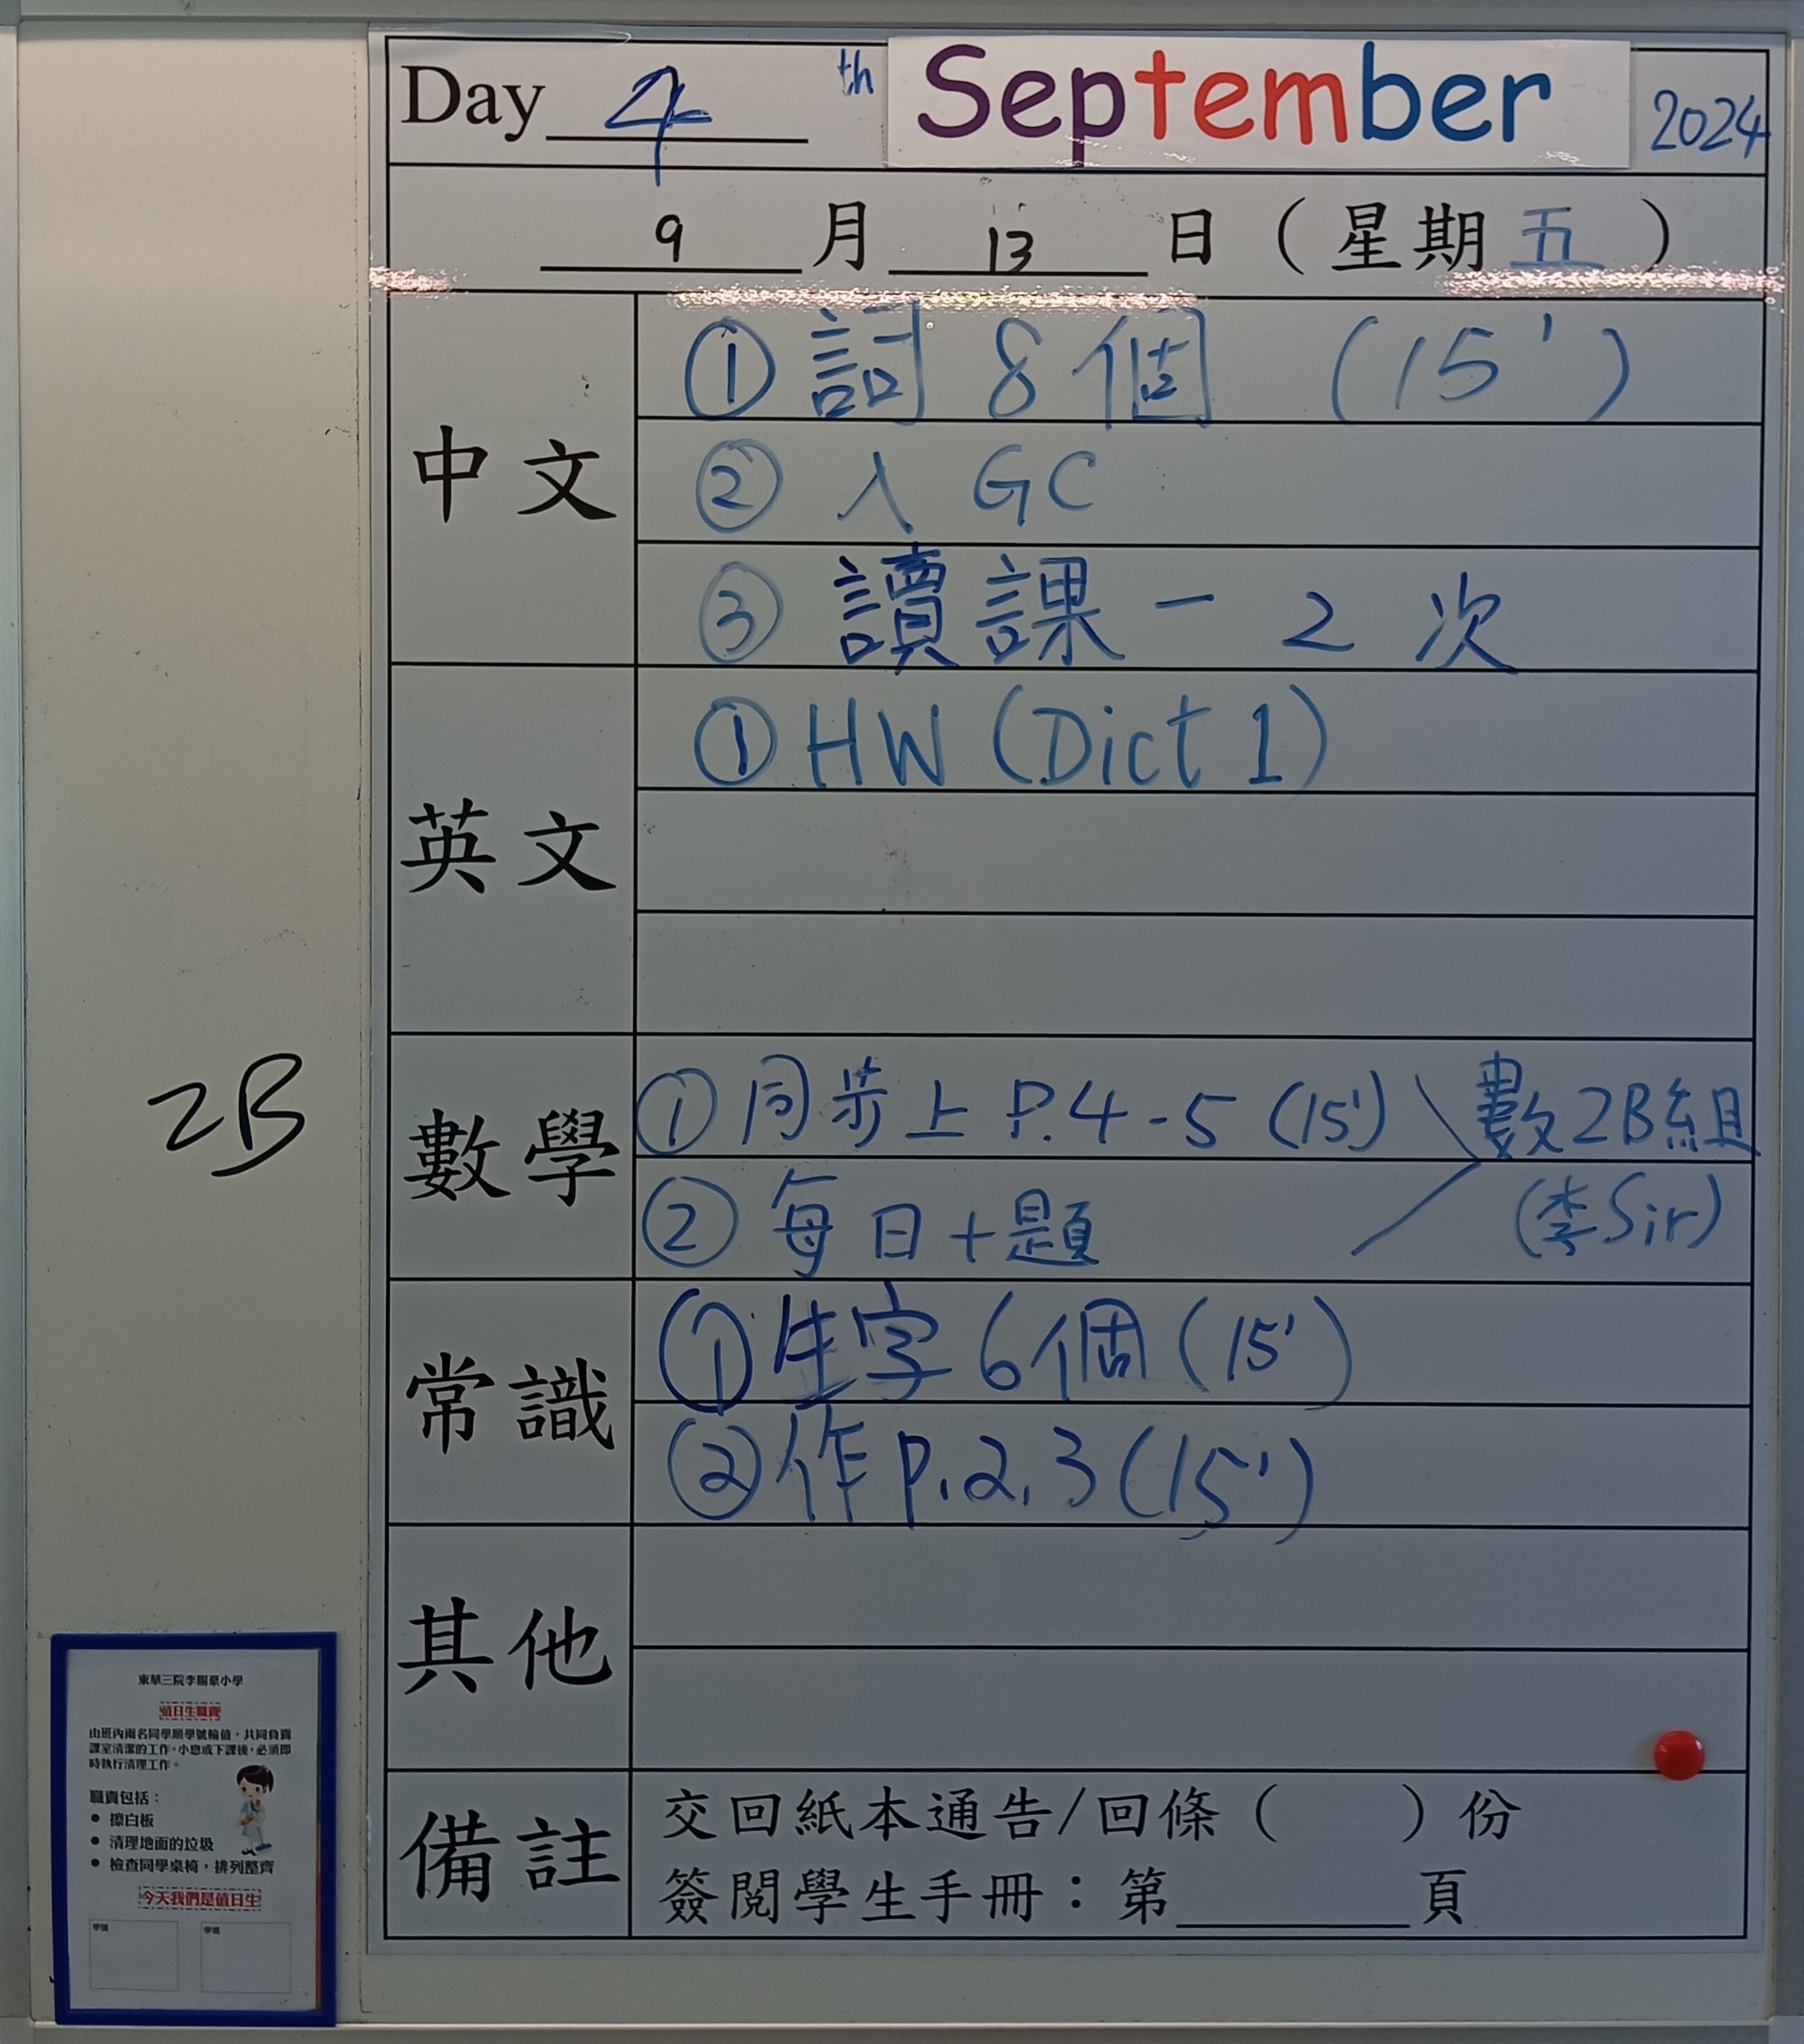 Day 4 th September 2024
9 月 13 日 ( 星期 五 )
中文
① 詞 8 個 (15')
② 入 GC
③ 讀課一 2 次
英文
① HW (Dict 1)
數學
① 同步上 P.4-5 (15') 數2B組
② 每日十題 (李Sir)
常識
① 生字 6個 (15')
② 作 P.2,3 (15')
其他
備註
交回紙本通告/回條 ( ) 份
簽閱學生手冊：第________頁
2B
東華三院李賜豪小學
值日生職責
由班內兩名同學順學號輪值，共同負責
課室清潔的工作。小息或下課後，必須即
時執行清理工作。
職責包括：
● 擦白板
● 清理地面的垃圾
● 檢查同學桌椅，排列整齊
今天我們是值日生
學號 學號